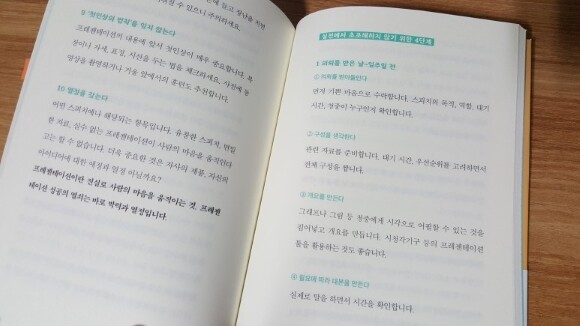 9 '첫인상의 법칙'을 잊지 않는다
프레젠테이션의 내용에 있어 첫인상이 매우 중요합니다. 복
장이나 자세, 표정, 시선을 두는 법을 체크하세요. 사전에 동
영상을 촬영하거나 거울 앞에서의 훈련도 추천합니다.
10 열정을 갖는다
어떤 스피치에나 해당되는 항목입니다. 유창한 스피치, 면밀
한 자료, 실수 없는 프레젠테이션만이 사람의 마음을 움직인다
고는 할 수 없습니다. 더욱 중요한 것은 자사의 제품, 자신의
아이디어에 대한 애정과 열정 아닐까요?
프레젠테이션이란 진실로 사람의 마음을 움직이는 것. 프레젠
테이션 성공의 열쇠는 바로 박력과 열정입니다.
실전에서 초조해하지 않기 위한 4단계
1 의뢰를 받은 날~일주일 전
① 의뢰를 받아들인다
먼저 기쁜 마음으로 수락합니다. 스피치의 목적, 역할, 대기
시간, 청중이 누구인지 확인합니다.
② 구성을 생각한다
관련 자료를 준비합니다. 대기 시간, 우선순위를 고려하면서
전체 구성을 짭니다.
③ 개요를 만든다
그래프나 그림 등 청중에게 시각으로 어필할 수 있는 것을
집어넣고 개요를 만듭니다. 시청각기구 등의 프레젠테이션
툴을 활용하는 것도 좋습니다.
④ 필요에 따라 대본을 만든다
실제로 말을 하면서 시간을 확인합니다.